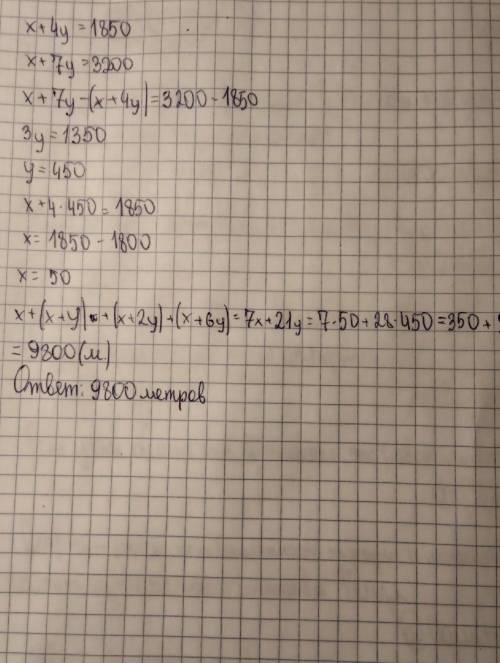 x+4y=1850
x+7y=3200
x+7y-(x+4y)=3200-1850
3y=1350
y=450
x+4·450=1850
x=1850-1800
x=50
x+(x+y)+(x+2y)+(x+6y)=7x+21y=7·50+28·450=350+
=9800(м)
Ответ: 9800 метров